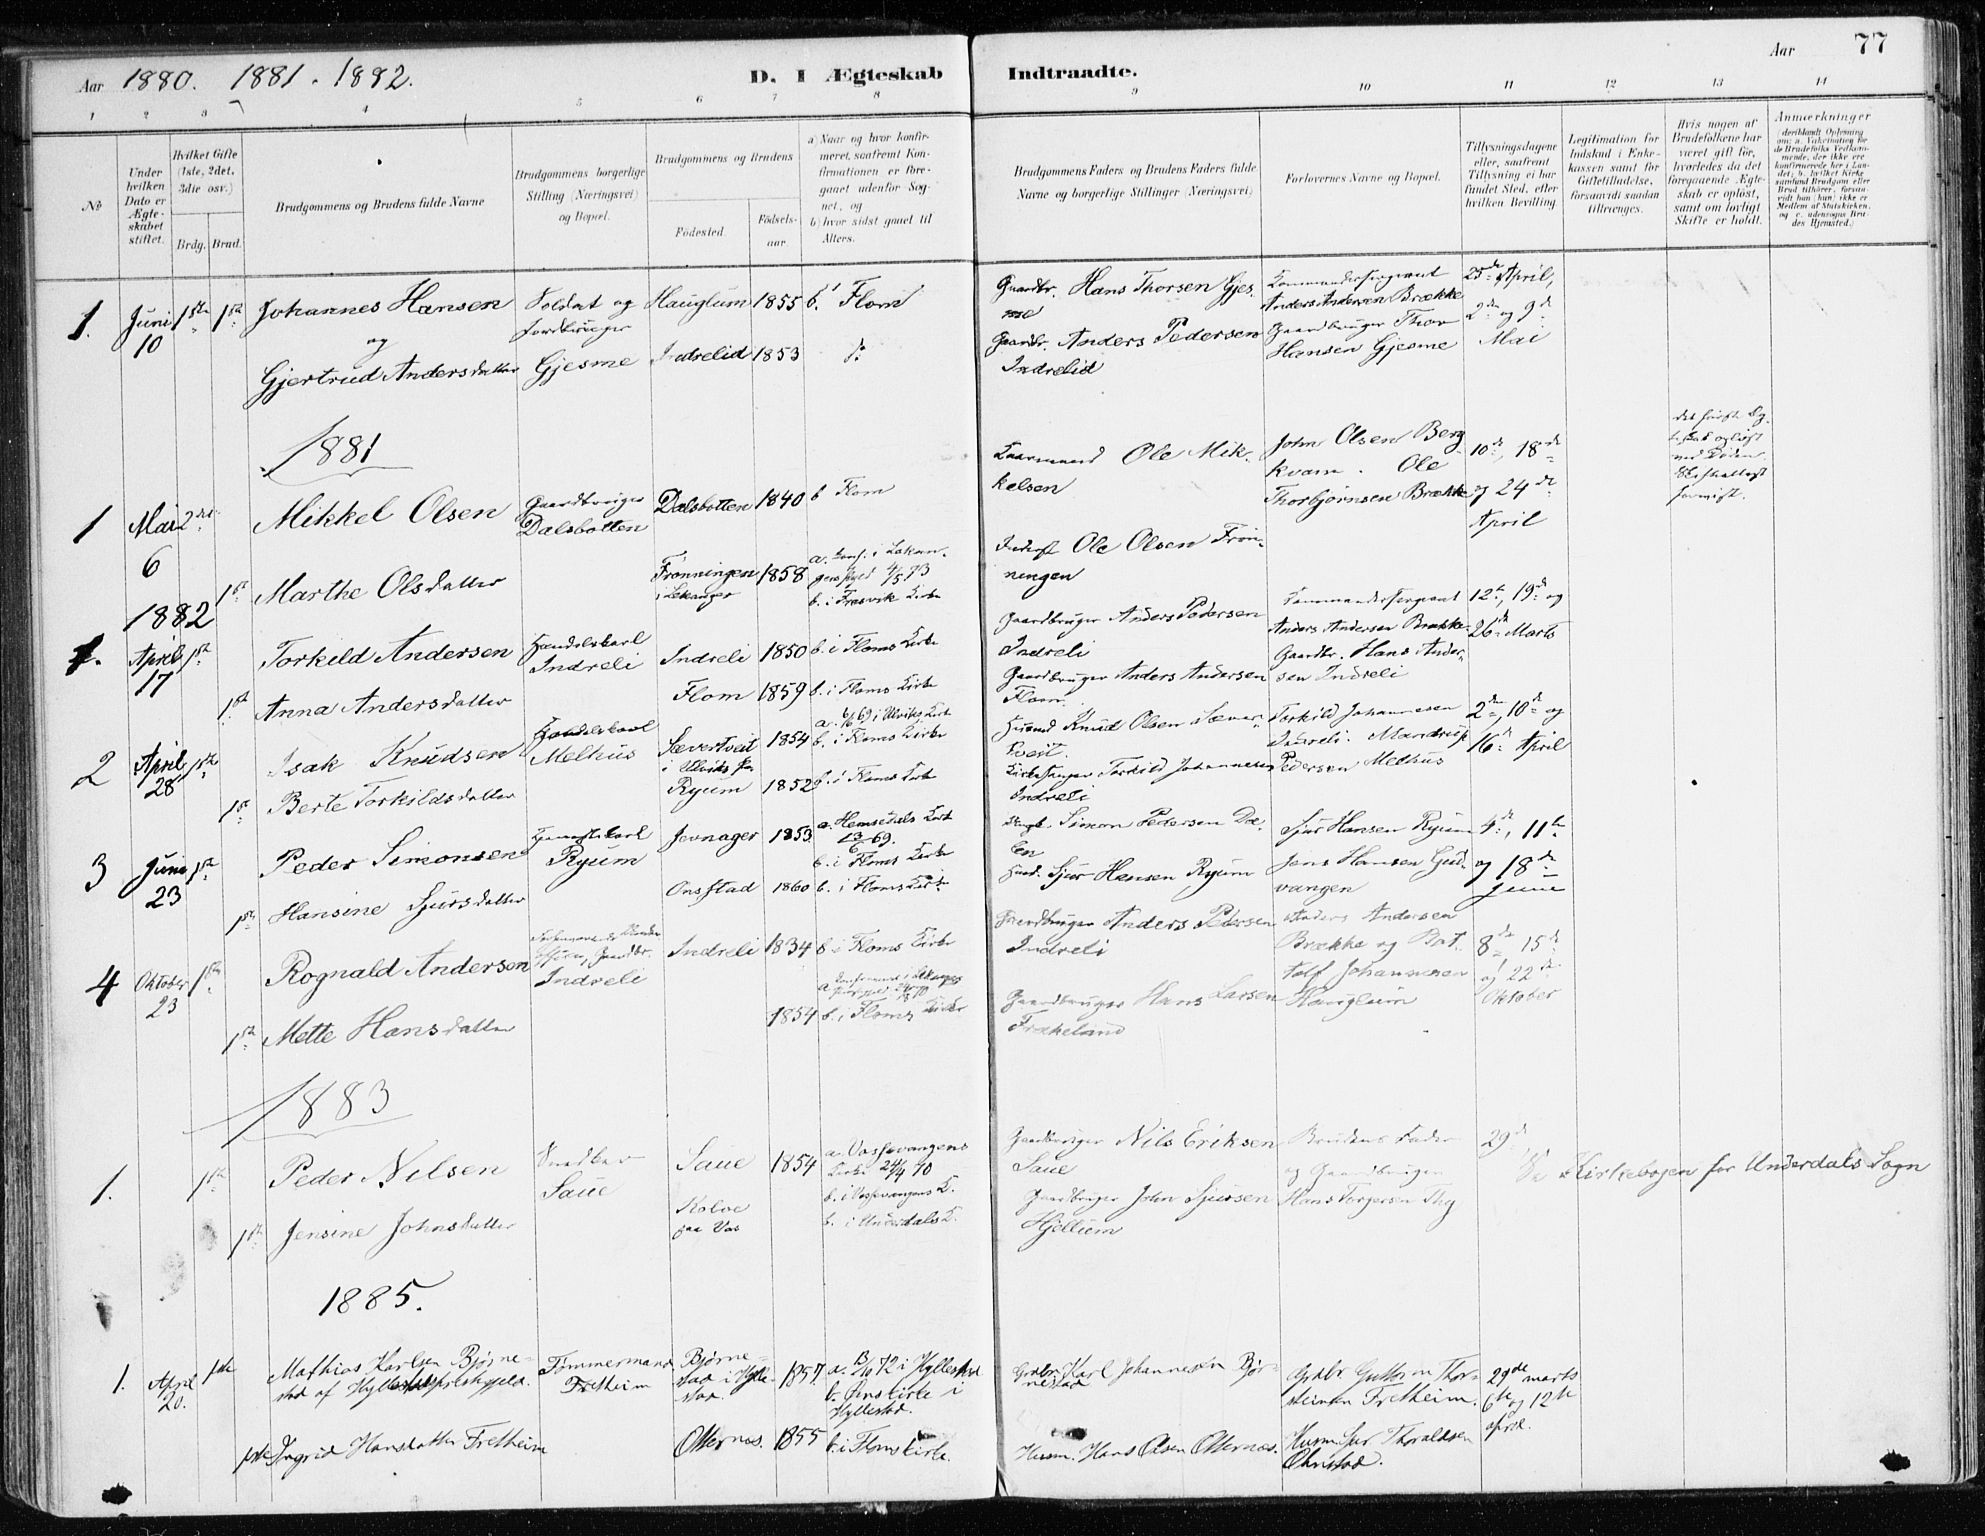 Aar 1880. 1881. 1882.
D. I Ægteskab Indtraadte.
Aar 77
1 2 3 4 5 6 7 8 9 10 11 12 13 14
No
Under hvilken Dato er Ægteskabet stiftet.
Hvilket Gifte (1ste, 2det, 3die osv.)
Brdg. Brud.
Brudgommens og Brudens fulde Navne
Brudgommens borgerlige Stilling (Næringsvei) og Bopæl.
Brudgommens og Brudens
Fødested. Fødselsaar
a) Naar og hvor konfirmeret, saafremt Konfirmationen er foregaaet udenfor Sognet, og
b) hvor sidst gaaet til Alters.
Brudgommens Faders og Brudens Faders fulde Navne og borgerlige Stillinger (Næringsvei)
Forlovernes Navne og Bopæl.
Tillysningsdagene eller, saafremt Tillysning ei har fundet Sted, efter hvilken Bevilling.
Legitimation for Indskud i Enkekassen samt for Giftetilladelse, forsaavidt saadan tiltrænges.
Hvis nogen af Brudefolkene har været gift før, hvorledes da det foregaaende Ægteskab er opløst, samt om lovligt Skifte er holdt.
Anmærkninger
1. Juni 10 1ste 1ste Johannes Hansen og Gjertrud Andersdatter
Soldat og Jordbruger Gjesme
Hauglum 1855 b. Flom
Indrelid 1853 do
Gaardbr. Hans Thorsen Gjesme
Gaardbr. Anders Pedersen Indrelid
Kommandersergeant Anders Andersen Brække
Gaardbruger Thor Hansen Gjesme
25de April, 2den og 9de Mai
1881
1 Mai 6 2det Mikkel Olsen
Gaardbruger Dalsbotten
Dalsbotten 1840 b Flom
Kaarmand Ole Mikkelsen
John Olsen Bergkvam. Ole Thorbjørnsen Brække
10de, 18de og 24de April
1ste Marthe Olsdatter
Frønningen i Lekanger 1858
b. i Fresvik Kirke
Ole Olsen Frønningen
1882
1. April 17 1ste Torkild Andersen
Handelskarl Indreli
Indreli 1850 b. i Floms Kirke
Gaardbruger Anders Pedersen Indreli
Kommandersergeant Anders Andersen Brække
Gaardbr. Hans Andersen Indreli
12te, 19de og 26de Marts
1ste Anna Andersdatter
Flom 1859 b. i Floms Kirke
Gaardbruger Anders Andersen Flom
2 April 28 1ste Isak Knudsen
Handelskarl Melhus
Sævertveit i Ulviks Pr. 1854 a. 6/6 69 i Ulviks Kirke b. i Floms Kirke
Husmd Knud Olsen Sævertveit
Torkild Johannesen Indreli. Mandrup Pedersen Melhus
2den, 10de og 16de April
1ste Berte Torkildsdatter
Ryum 1852 b. i Floms Kirke
Kirkesanger Torkild Johannesen Indreli
3 Juni 23 1ste Peder Simonsen
Ryum
Jevnager 1853 a. Hemsedals Kirke 69. b. i Floms Kirke
Simon Pedersen
Sjur Hansen Ryum
Jens Hansen Gudvangen
4de, 11te og 18de Juni
1ste Hansine Sjursdatter
Onstad 1860 b. i Floms Kirke
Sjur Hansen Ryum
4 Oktober 23 1ste Rognald Andersen
Gaardbr. Indreli
Indreli 1834 b. i Floms Kirke
Gaardbruger Anders Pedersen Indreli
Anders Andersen Brække og Botolf Johannesen Hauglum
8de, 15de og 22de Oktober
1ste Mette Hansdatter
1854 b. i Floms Kirke
Gaardbruger Hans Larsen Frekeland
1883
1. 1ste Peder Nilsen
Snedker Saue
Saue 1854 a. Vossevangens Kirke 24/4 70 b. i Vossevangens K.
Gaardbruger Nils Eriksen Saue
Brudens Fader og Gaardbruger Hans Torgersen
29de
Se Kirkebogen for Underdals Sogn
1ste Jensine Johnsdatter
paa Vos
b. i Underdals K.
Gaardbruger John Sjursen Hjellum
1885.
1. April 20. 1ste Mathias Karlsen Bjørnestad af Hyllestad Præstegjeld.
Tømmermand Fretheim
Bjørnestad i Hyllestad 1857 a. 72 i Hyllestad b. Kirke i Hyllestad.
Grdbr. Karl Johannesen Bjørnestad
Grdbr. Guttorm Thorsteinsen Fretheim.
29de marts 6te og 12te april.
1ste Ingrid Hansdatter Fretheim
Otternes. 1855 b. i Floms kirke.
Husm. Hans Olsen Otternæs.
Husm. Sjur Thoraldsen